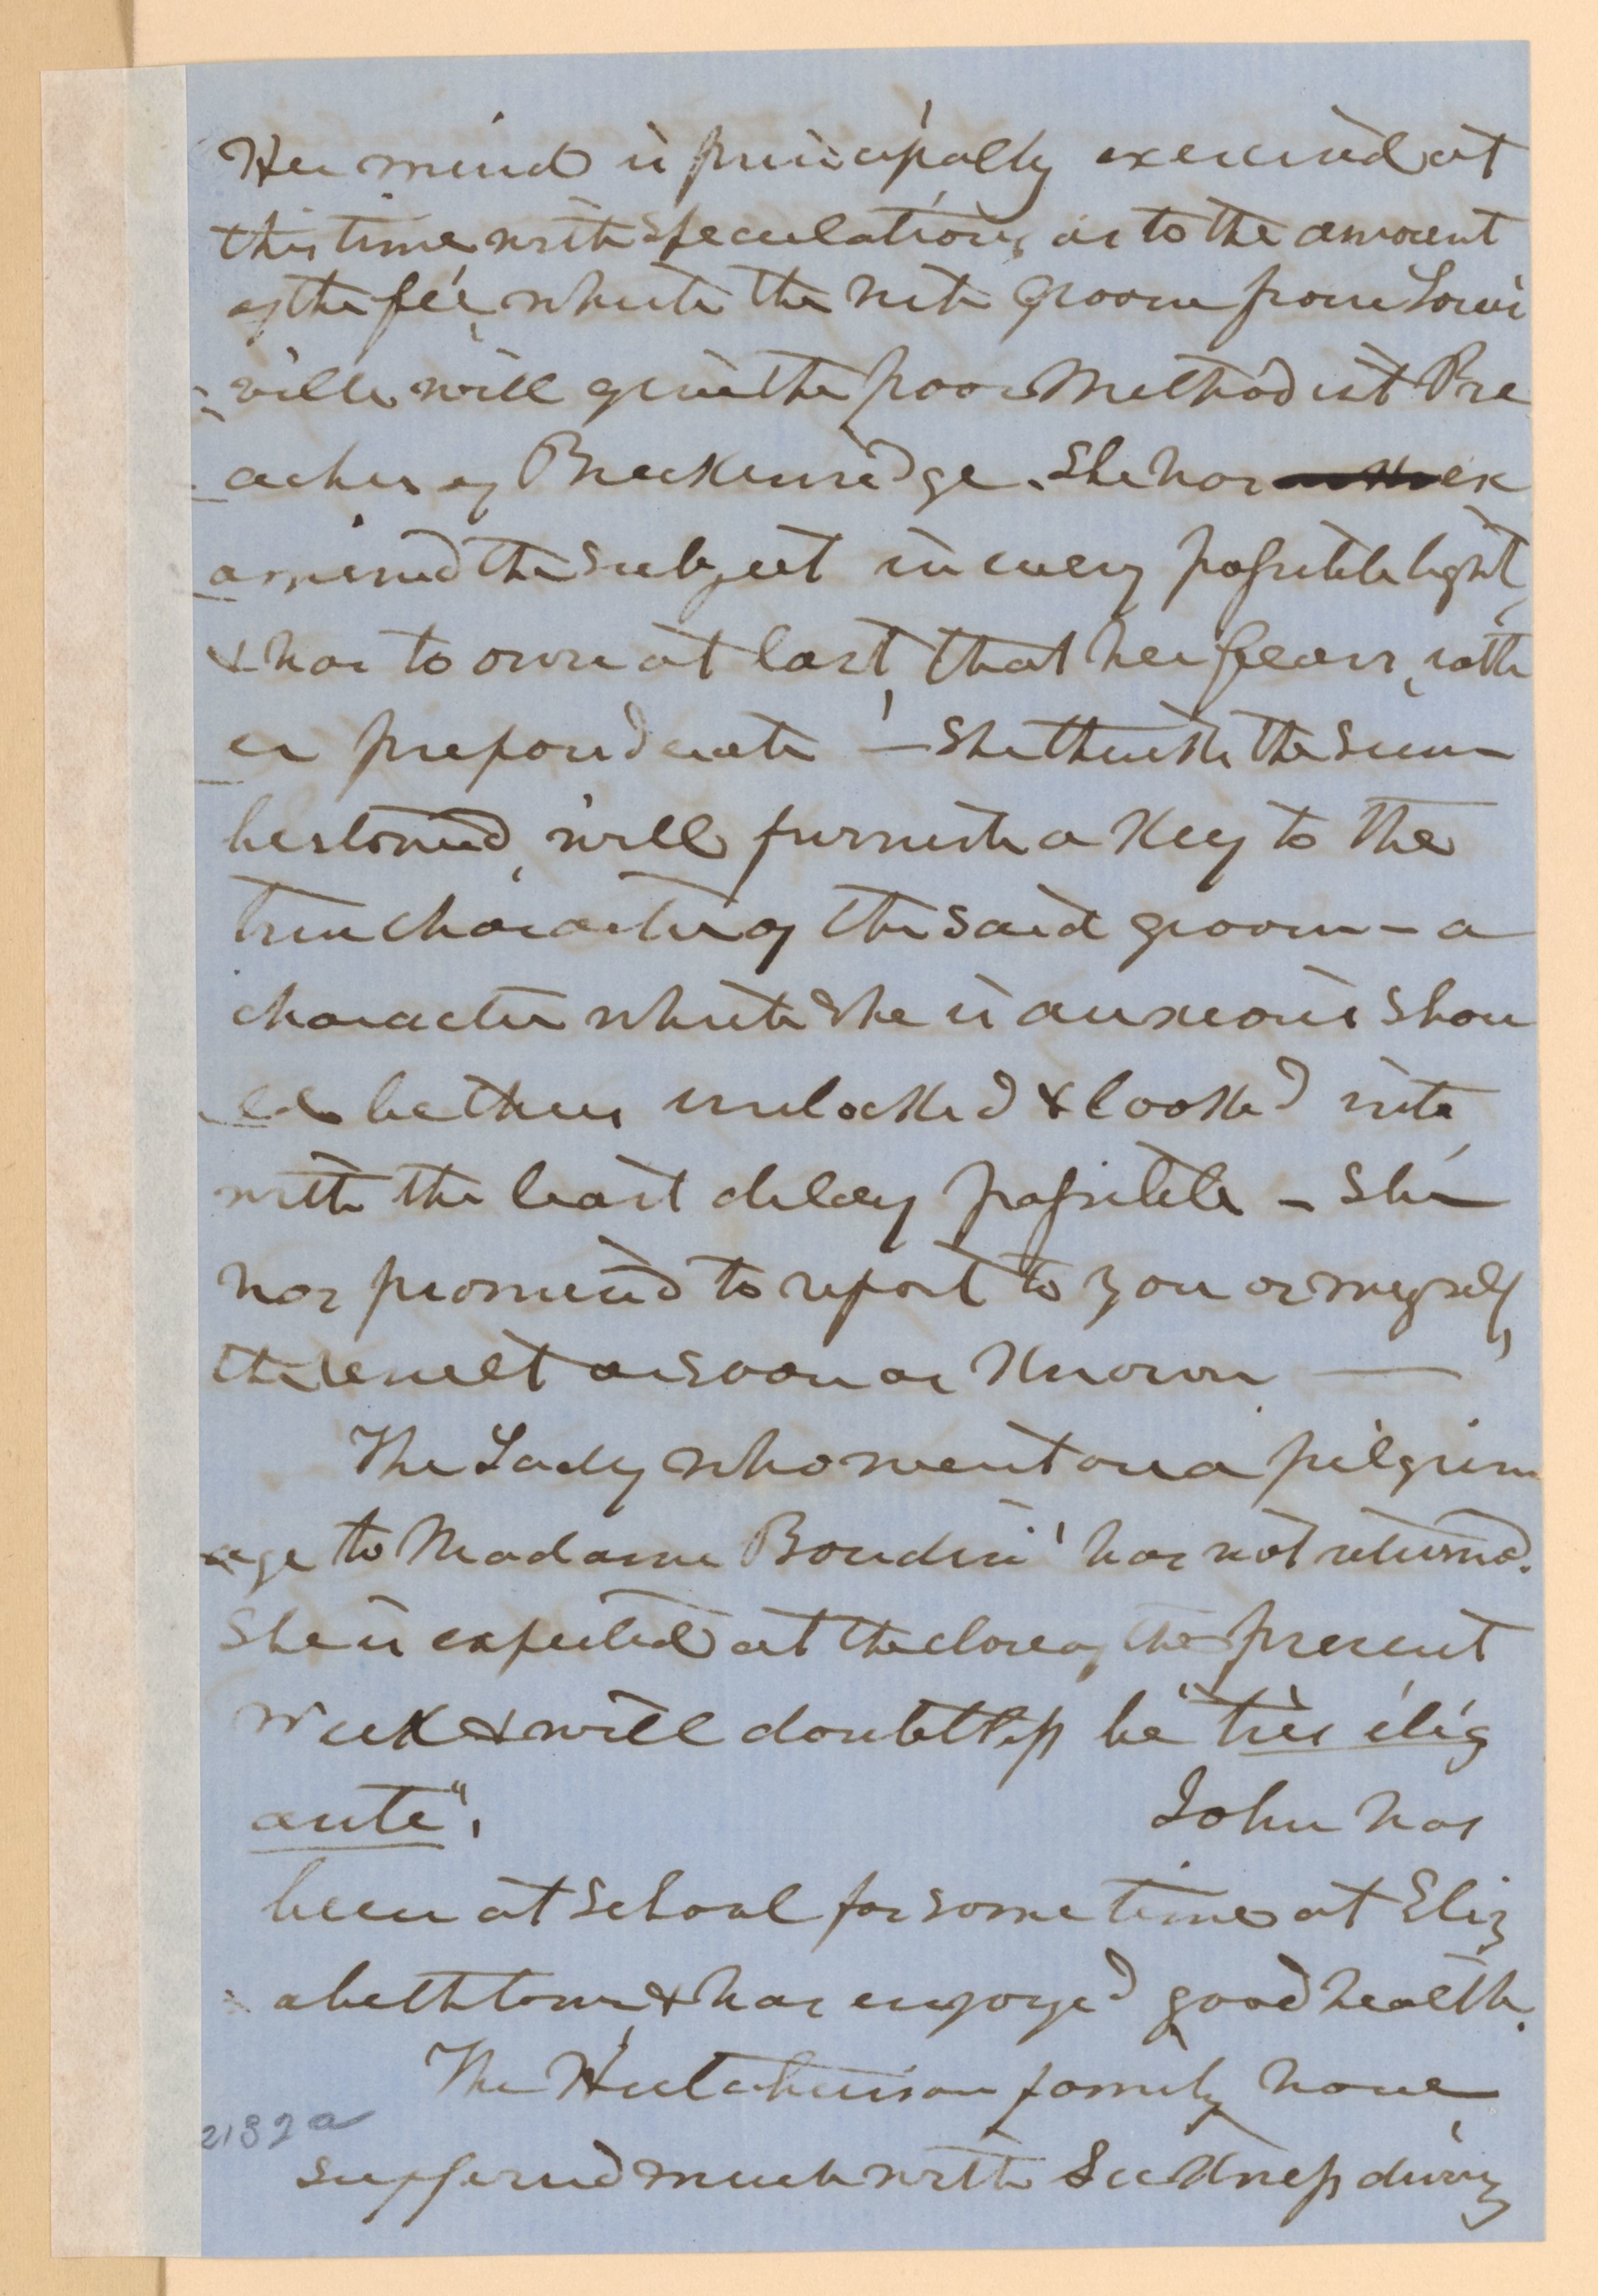 Her mind is principally exercised at
this time with speculations, as to the amount
of the fee, which the rich Groom from Louis
=ville will give the poor Methodist Pre
acher of Breckenridge. She has ex
amined the subject in every possible light,
& has to own at last, that her fears, rath
er preponderate! — She thinks the sum
bestowed, will furnish a key to the
true character of the said groom — a
character which she is anxious shou
ld be thus unlocked & looked into
with the least delay possible — She
has promised to report to you or myself,
the result as soon as known —
The Lady who went on a pilgrim
age to Madame Boudin' has not returned.
She is expected at the close of the present
week & will doubtless be "tres élég
ante".
John has
been at school for some time at Eliz
abethtown & has enjoyed good health.
The Hutchinson family have
2132a
suffered much with Sickness during